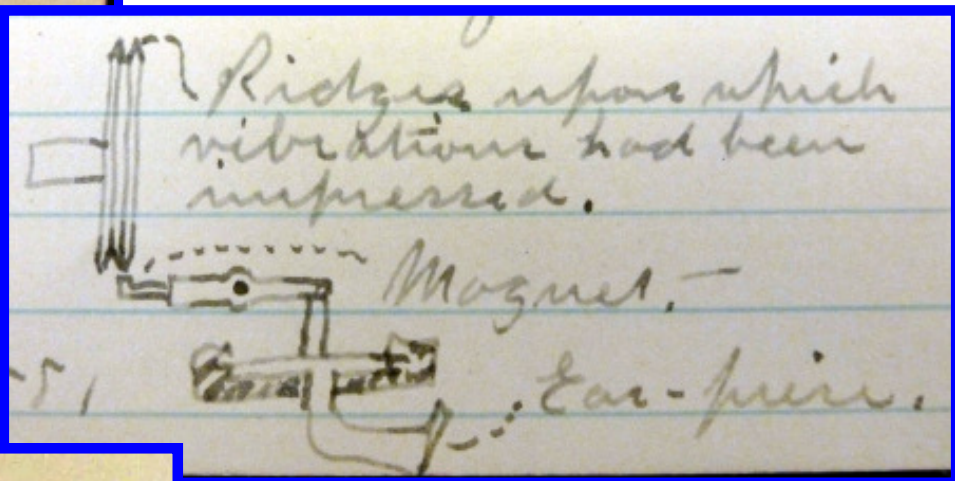 Ridges upon which
vibrations had been
impressed.
Magnet. —
Ear-piece.